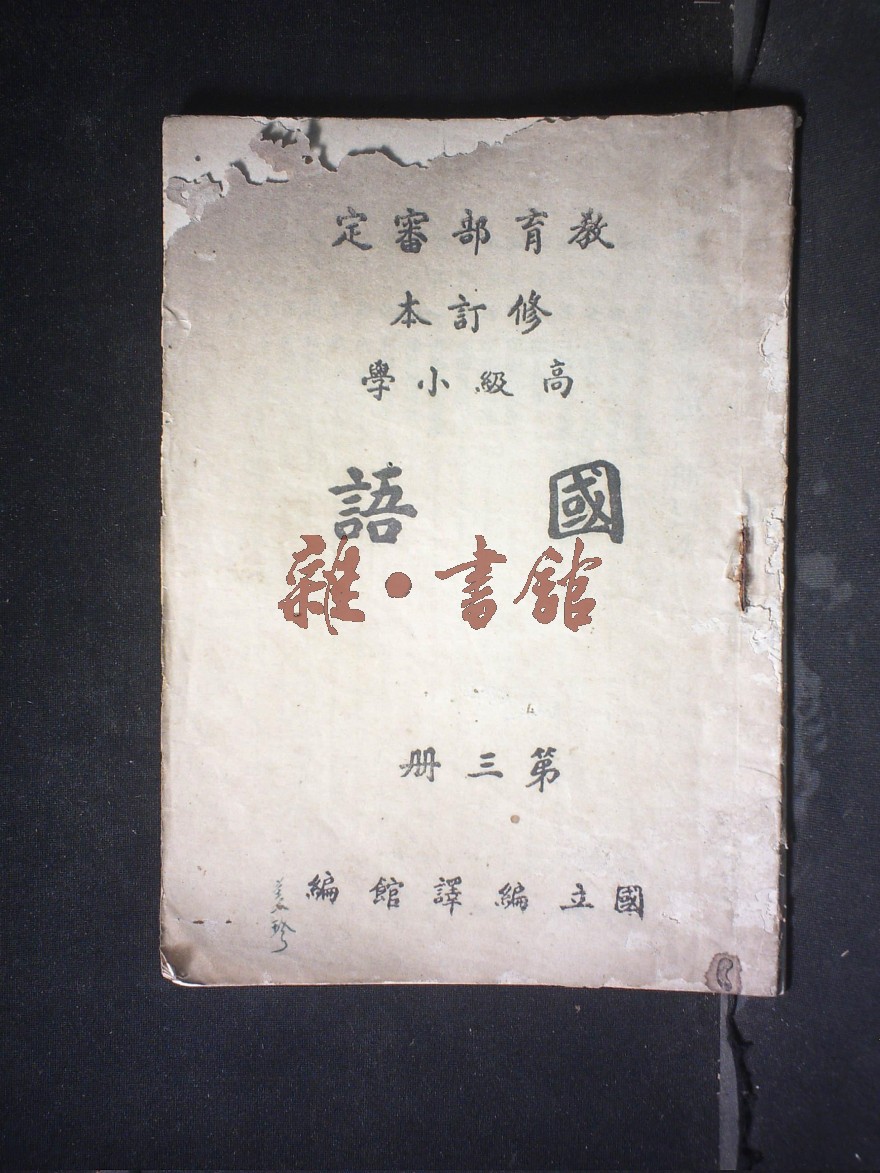 教育部審定
修訂本
高級小學
國語
雜·書館
第三冊
國立編譯館編